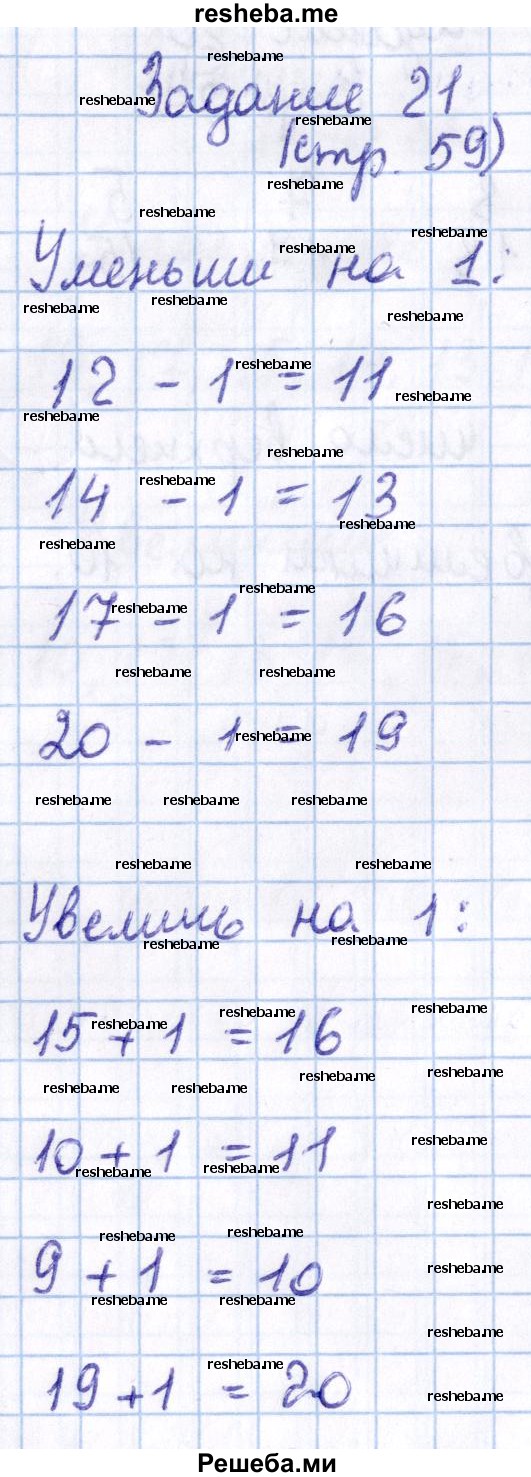 resheba.me
Задание 21
(стр. 59)
Уменьши на 1:
12 - 1 = 11
14 - 1 = 13
17 - 1 = 16
20 - 1 = 19
Увеличь на 1:
15 + 1 = 16
10 + 1 = 11
9 + 1 = 10
19 + 1 = 20
Решеба.ми